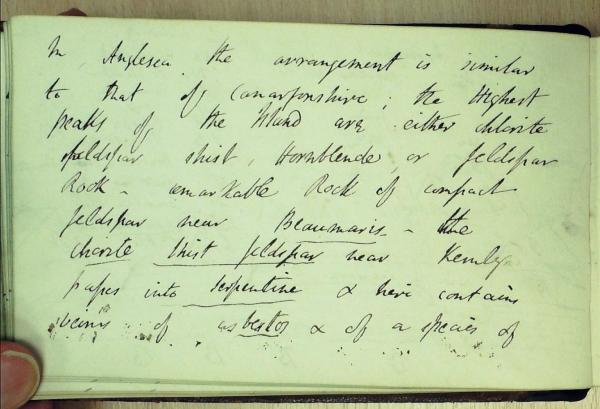 In Anglesea the arrangement is similar
to that of Canarfonshire; the Highest
peaks of the Island are either chlorite
feldspar shist, Hornblende or feldspar
Rock – remarkable Rock of compact
feldspar near Beaumaris – the
chorite shist feldspar near
passes into serpentine & here contains
veins of asbestos & of a species of